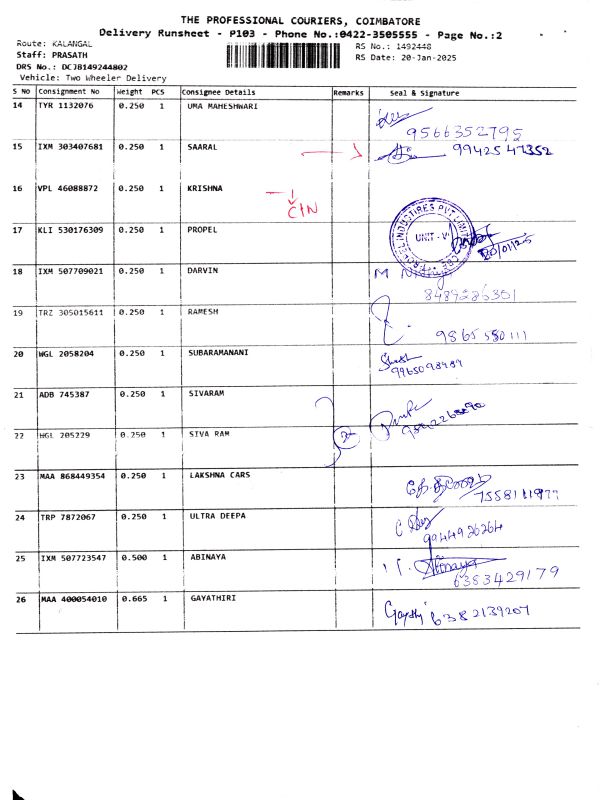 THE PROFESSIONAL COURIERS, COIMBATORE
Delivery Runsheet - P103 - Phone No.:0422-3505555 - Page No.:2
Route: KALANGAL
Staff: PRASATH
DRS No.: DCJB149244802
Vehicle: Two Wheeler Delivery
RS No.: 1492448
RS Date: 20-Jan-2025
S No Consignment No Weight PCS Consignee Details Remarks Seal & Signature
14 TYR 1132076 0.250 1 UMA MAHESHWARI
9566352795
15 IXM 303407681 0.250 1 SAARAL 9942547352
16 VPL 46088872 0.250 1 KRISHNA
C/N
17 KLI 530176309 0.250 1 PROPEL
PROPEL INDUSTRIES PVT LIMITED
UNIT - VI
20/01/25
18 IXM 507709021 0.250 1 DARVIN
8489286301
19 TRZ 305015611 0.250 1 RAMESH
9865580111
20 WGL 2058204 0.250 1 SUBARAMANANI
9965098989
21 ADB 745387 0.250 1 SIVARAM
22 HGL 205229 0.250 1 SIVA RAM
23 MAA 868449354 0.250 1 LAKSHNA CARS
24 TRP 7872067 0.250 1 ULTRA DEEPA
9944926264
25 IXM 507723547 0.500 1 ABINAYA
Abinaya
6383429179
26 MAA 400054010 0.665 1 GAYATHIRI
Gayathri 6382139207